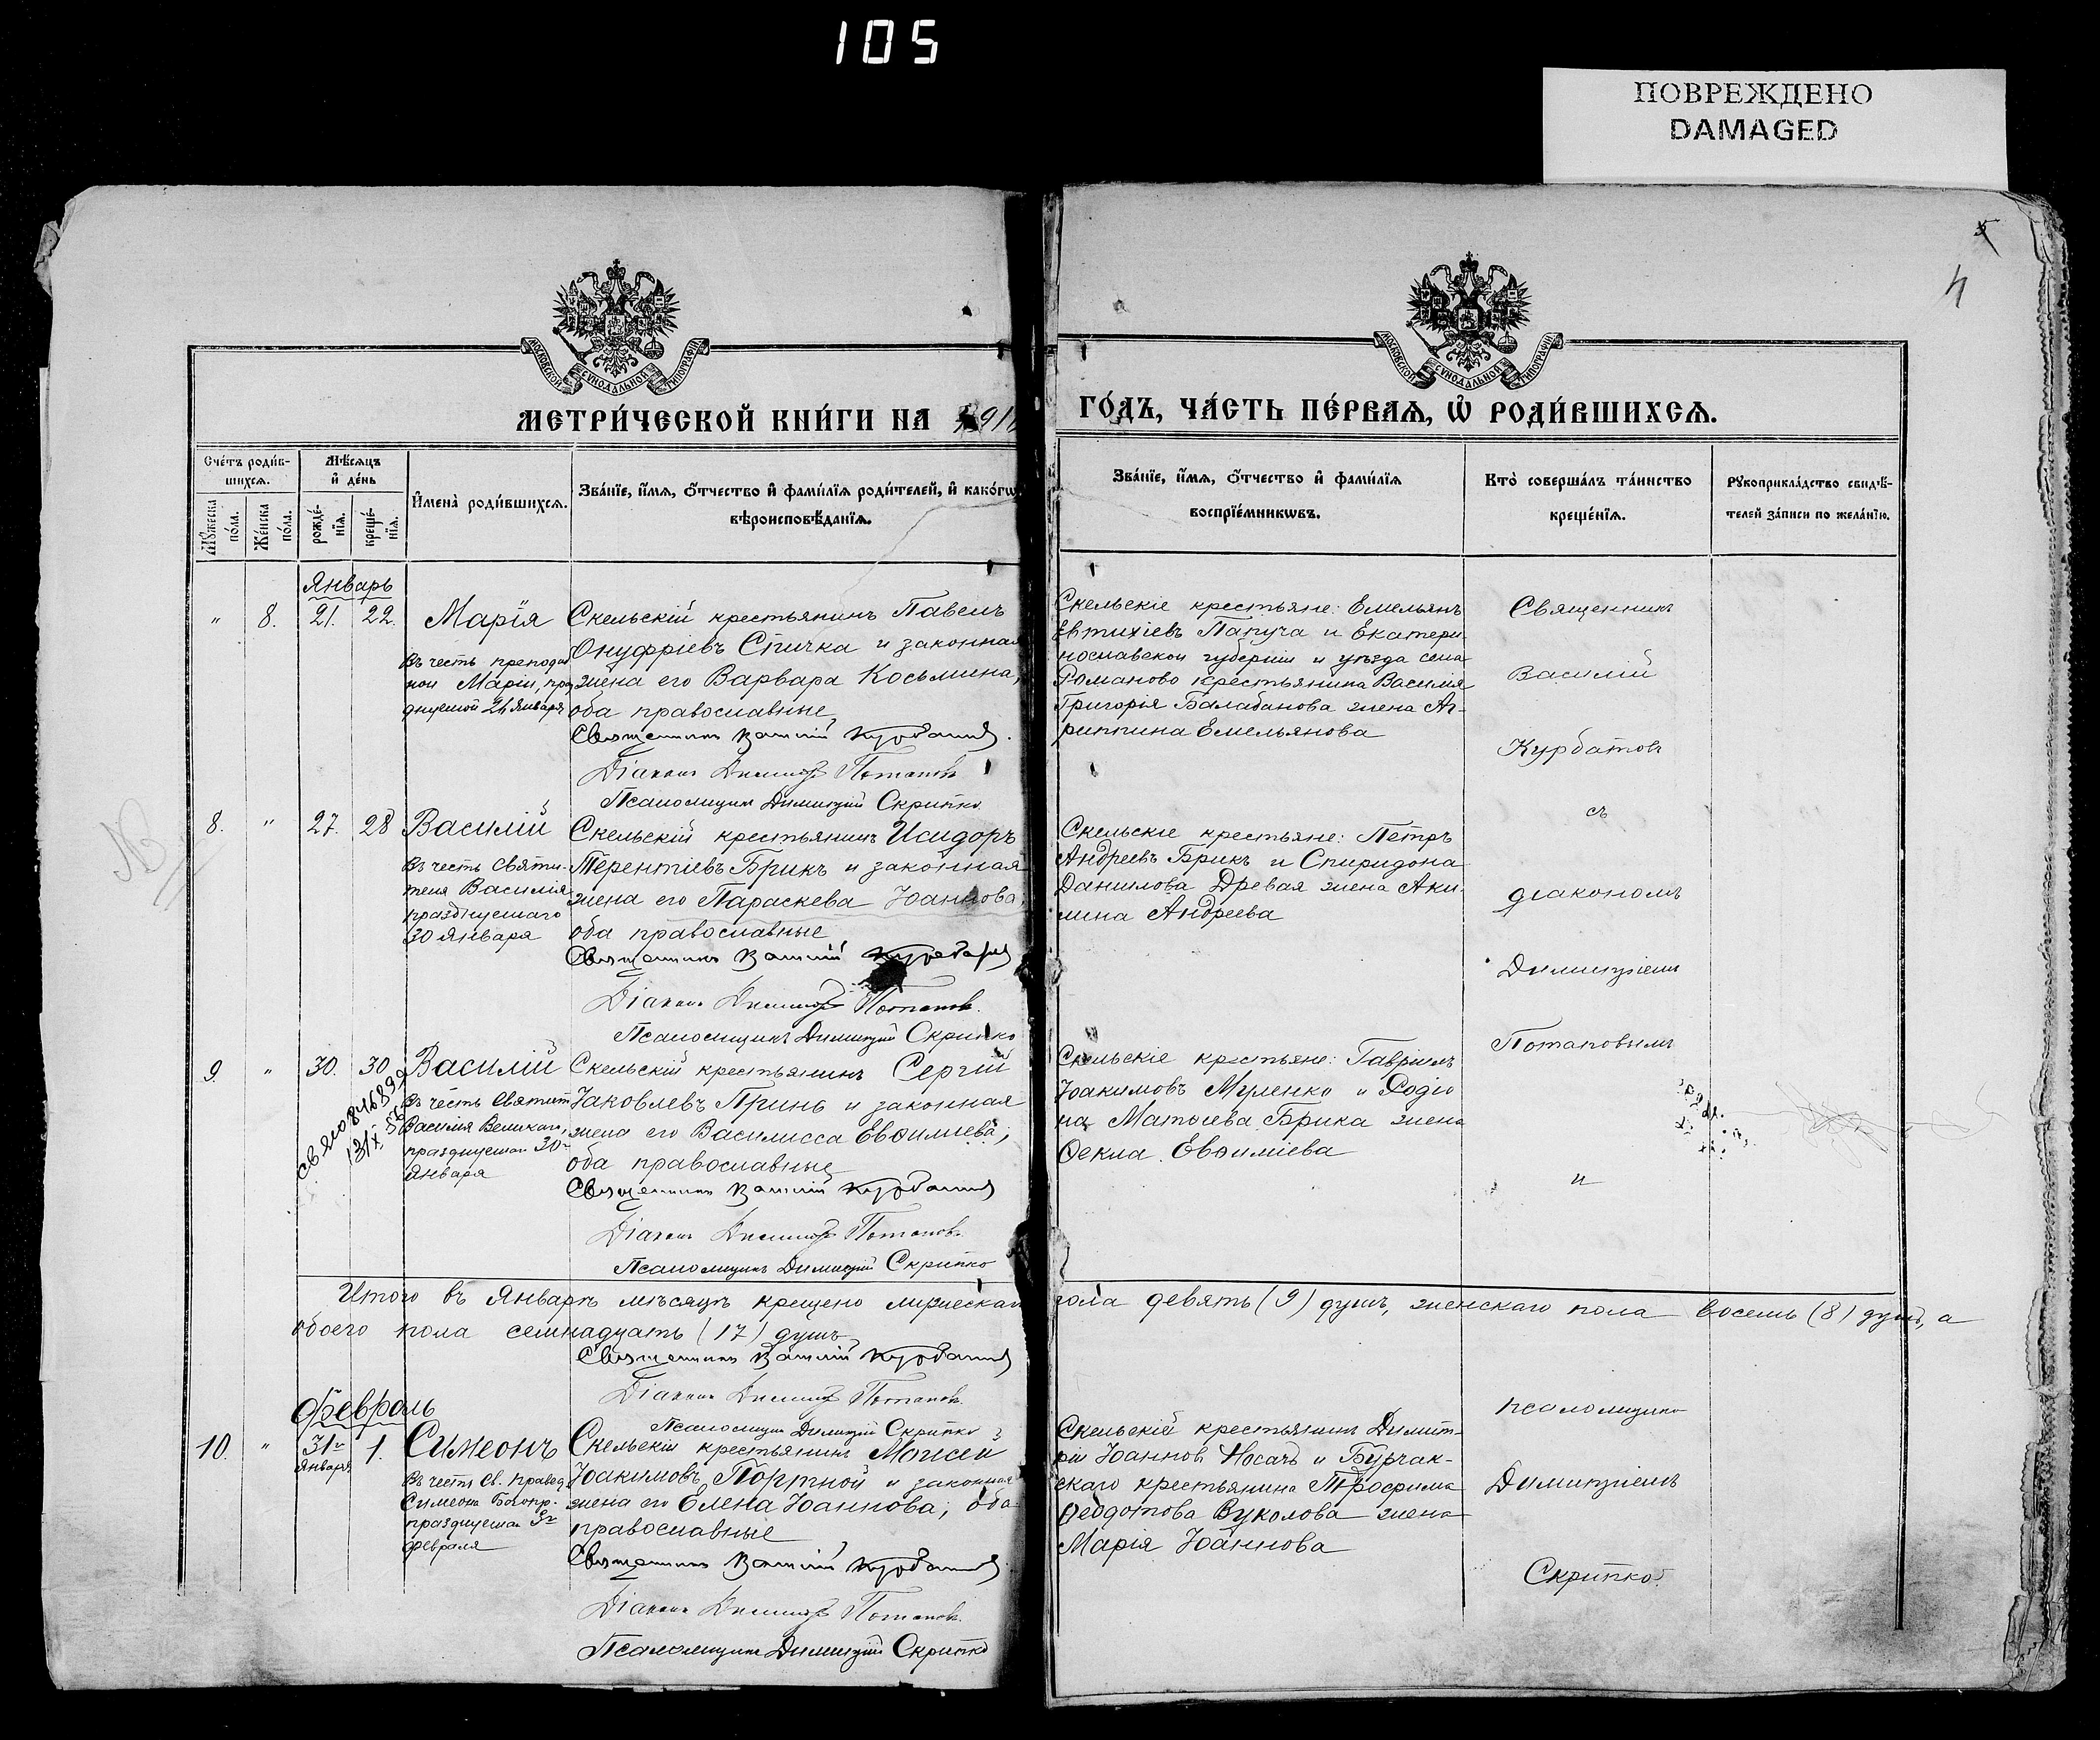 105
ПОВРЕЖДЕНО
DAMAGED
5
4
МОСКОВСКОЙ СУНОДАЛЬНОЙ ТИПОГРАФІИ
МОСКОВСКОЙ СУНОДАЛЬНОЙ ТИПОГРАФІИ
МЕТРИ́ЧЕСКОЙ КНИ́ГИ НА 191
ГО́ДЪ, ЧА́СТЬ ПЕ́РВАѦ, Ѽ РОДИ́ВШИХСѦ.
Сче́тъ роди́в-
шихсѧ.
Мѣ́сѧцъ
и҆ де́нь
Мꙋ́жеска по́ла.
Же́нска по́ла.
рожде́-
нїѧ.
креще́-
нїѧ.
И҆мена̀ роди́вшихсѧ.
Зва́нїе, и҆́мѧ, ѻ҆́тчество и҆ фами́лїѧ роди́телей, и҆ како́гѡ
вѣроисповѣ́данїѧ.
Зва́нїе, и҆́мѧ, ѻ҆́тчество и҆ фами́лїѧ
воспрїе́мникѡвъ.
Кто̀ соверша́лъ та́инство
креще́нїѧ.
Рꙋкоприкла́дство свидѣ́-
телей за́писи по жела́нїю.
Январь
" 8. 21. 22. Марія
Въ честь преподоб
ной Маріи, праз
днуемой 26 Января
Скельскій крестьянинъ Павелъ
Онуфріевъ Спичка и законная
жена его Варвара Косьмина,
оба православные
Священникъ Василій Курбатовъ.
Діаконъ Димитрій Потаповъ
Псаломщикъ Димитрій Скрипко
Скельскіе крестьяне: Емельянъ
Евтихіевъ Папуча и Екатери-
нославской губерніи и уѣзда села
Романово крестьянина Василія
Григорья Балабанова жена Аг-
риппина Емельянова
Священникъ
Василій
Курбатовъ
съ
діакономъ
Димитріемъ
Потаповымъ
и
псаломщико
Димитріемъ
Скрипко
8. " 27. 28 Василій
Въ честь Святи-
теля Василія
празднуемаго
30 Января
Скельскій крестьянинъ Исидоръ
Терентіевъ Брикъ и законная
жена его Параскева Іоаннова;
оба православные
Священникъ Василій Курбатовъ
Діаконъ Димитрій Потаповъ.
Псаломщикъ Димитрій Скрипко
Скельскіе крестьяне: Петръ
Андреевъ Брикъ и Спиридона
Данилова Древая жена Аки-
лина Андреева
9. " 30. 30 Василій
Въ честь Святит
Василія Великаго,
празднуемаг 30го
Января
Скельскій крестьянинъ Сергій
Іаковлевъ Принь и законная
жена его Василисса Евѳиміева;
оба православные
Священникъ Василій Курбатовъ
Діаконъ Димитрій Потаповъ.
Псаломщикъ Димитрій Скрипко
Скельскіе крестьяне: Гавріилъ
Іоакимовъ Муленко и Родіо
на Матѳіева Брика жена
Ѳекла Евѳиміева
Итого въ Январѣ мѣсяцѣ крещено мужескаго пола девять (9) душъ, женскаго пола восемь (8) душъ, а
обоего пола семнадцать (17) душъ
Священникъ Василій Курбатовъ
Діаконъ Димитрій Потаповъ.
Псаломщикъ Димитрій Скрипко
Февраль
10. " 31го
Января 1. Симеонъ
Въ честь св. правед
Симеона Богопр.
празднуемаг 3го
февраля
Скельскій крестьянинъ Моисей
Іоакимовъ Портной и законная
жена его Елена Іоаннова; оба
православные
Священникъ Василій Курбатовъ
Діаконъ Димитрій Потаповъ.
Псаломщикъ Димитрій Скрипко
Скельскій крестьянинъ Димит-
рій Іоаннов Носачъ и Бурчак-
скаго крестьянина Трофима
Ѳеодотова Вуколова жена
Марія Іоаннова